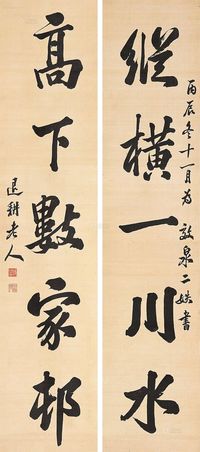 縱橫一川水
丙辰冬十一月為
敬泉二姪書
高下數家邨
退耕老人